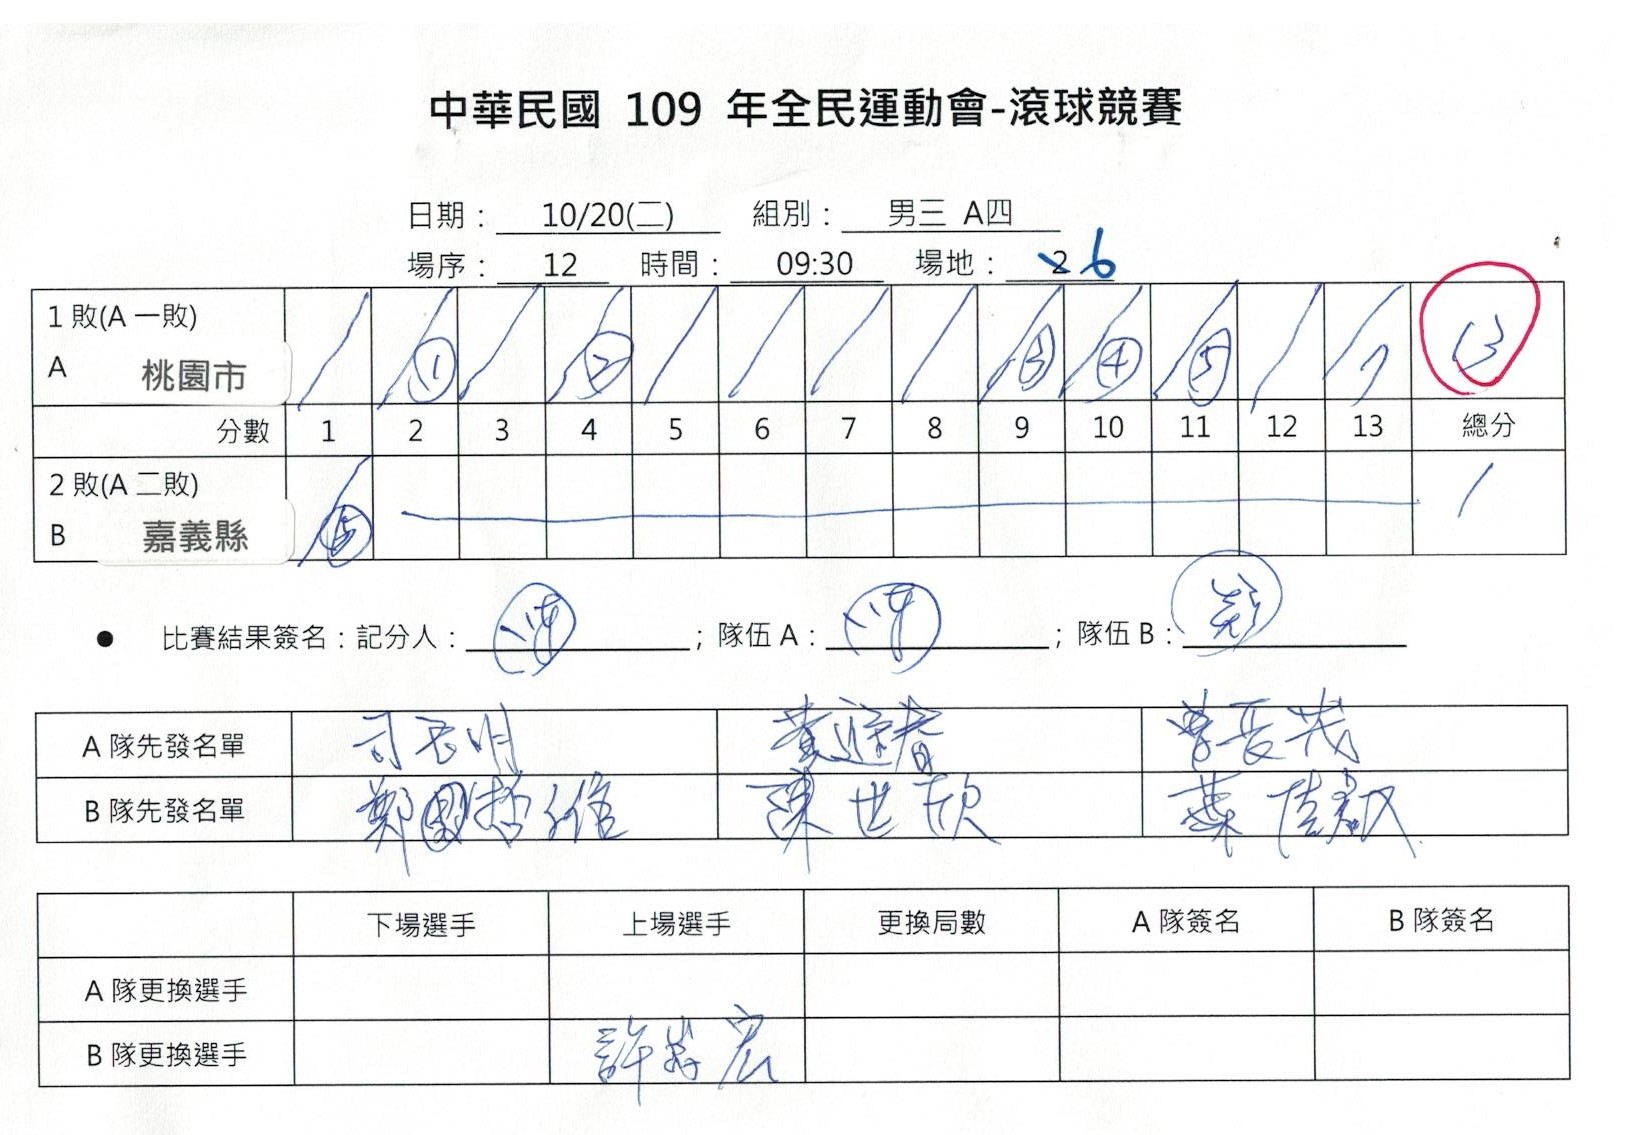 中華民國 109 年全民運動會-滾球競賽
日期： 10/20(二) 組別： 男三 A四
場序： 12 時間： 09:30 場地： 2 6
1 敗(A 一敗)
A 桃園市 / /① / /② / / / / /③ /④ /⑤ / /7 13
分數 1 2 3 4 5 6 7 8 9 10 11 12 13 總分
2 敗(A 二敗)
B 嘉義縣 / 1
● 比賽結果簽名：記分人： ；隊伍 A： ；隊伍 B：
A 隊先發名單
B 隊先發名單 鄭國 維 陳世欣 葉
下場選手 上場選手 更換局數 A 隊簽名 B 隊簽名
A 隊更換選手
B 隊更換選手 許 宏